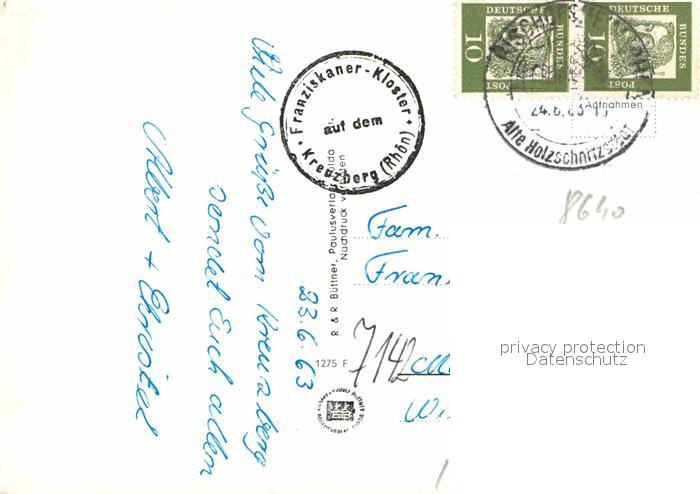 Viele Grüße vom Kreuzberg
sendet Euch allen
Albert + Christel
23.6.63
Franziskaner-Kloster
auf dem
Kreuzberg (Rhön)
R. & R. Büttner, Paulusverla
Nachdruck
1275 F
DEUTSCHE
BUNDES
POST
10
DEUTSCHE
BUNDES
POST
10
24.6.63
Alte Holzschnitzstadt
Aufnahmen
8640
Fam.
Fran
7142
Wi
privacy protection
Datenschutz